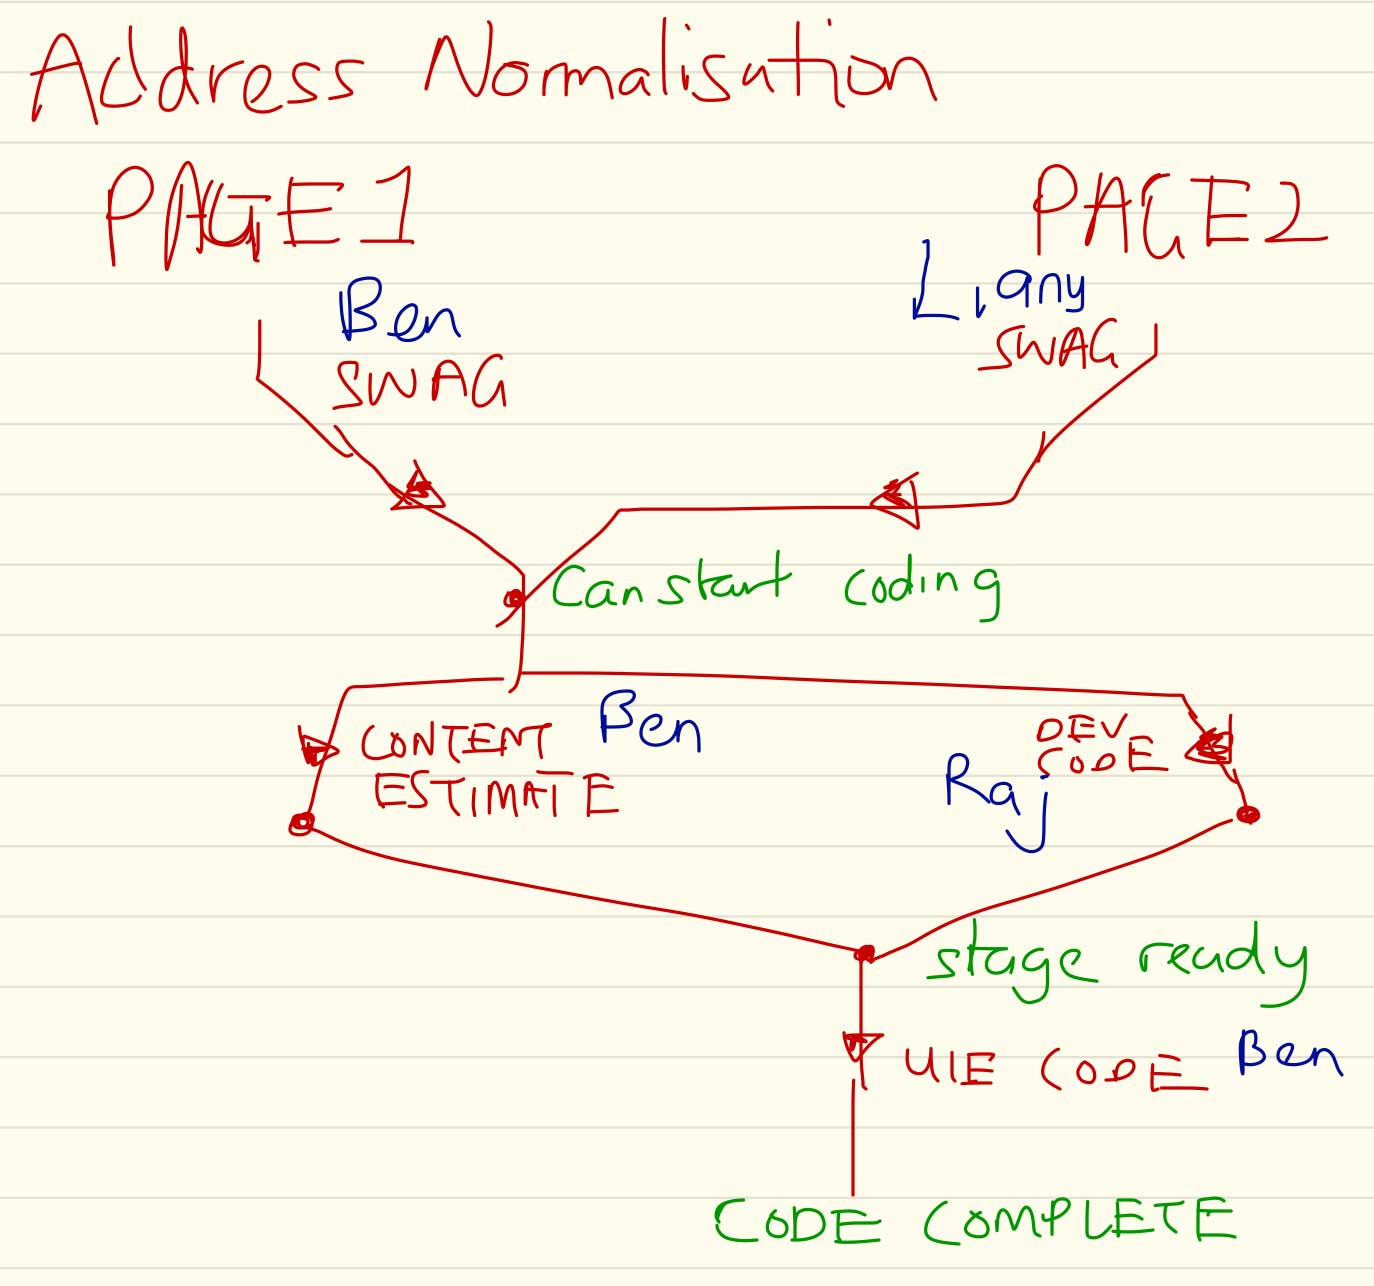 Address Normalisation
PAGE1 PAGE2
Ben
SWAG
Liany
SWAG
Can start coding
CONTENT
ESTIMATE
Ben
DEV
CODE
Raj
stage ready
UIE CODE Ben
CODE COMPLETE